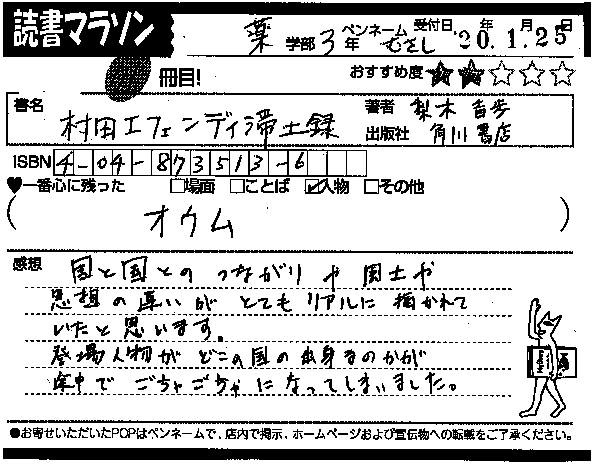 読書マラソン
薬 学部 3年 ペンネーム むさし 受付日 '20年 1月 25日
冊目! おすすめ度 ★★☆☆☆
書名 村田エフェンディ滞土録
著者 梨木香歩
出版社 角川書店
ISBN 4-04-873513-6
♥一番心に残った □場面 □ことば ☑人物 □その他
(オウム)
感想 国と国とのつながりや国土や
思想の違いがとてもリアルに描かれて
いたと思います。
登場人物がどこの国の出身なのかが
途中でごちゃごちゃになってしまいました。
●お寄せいただいたPOPはペンネームで、店内で掲示、ホームページおよび宣伝物への転載をご了承ください。